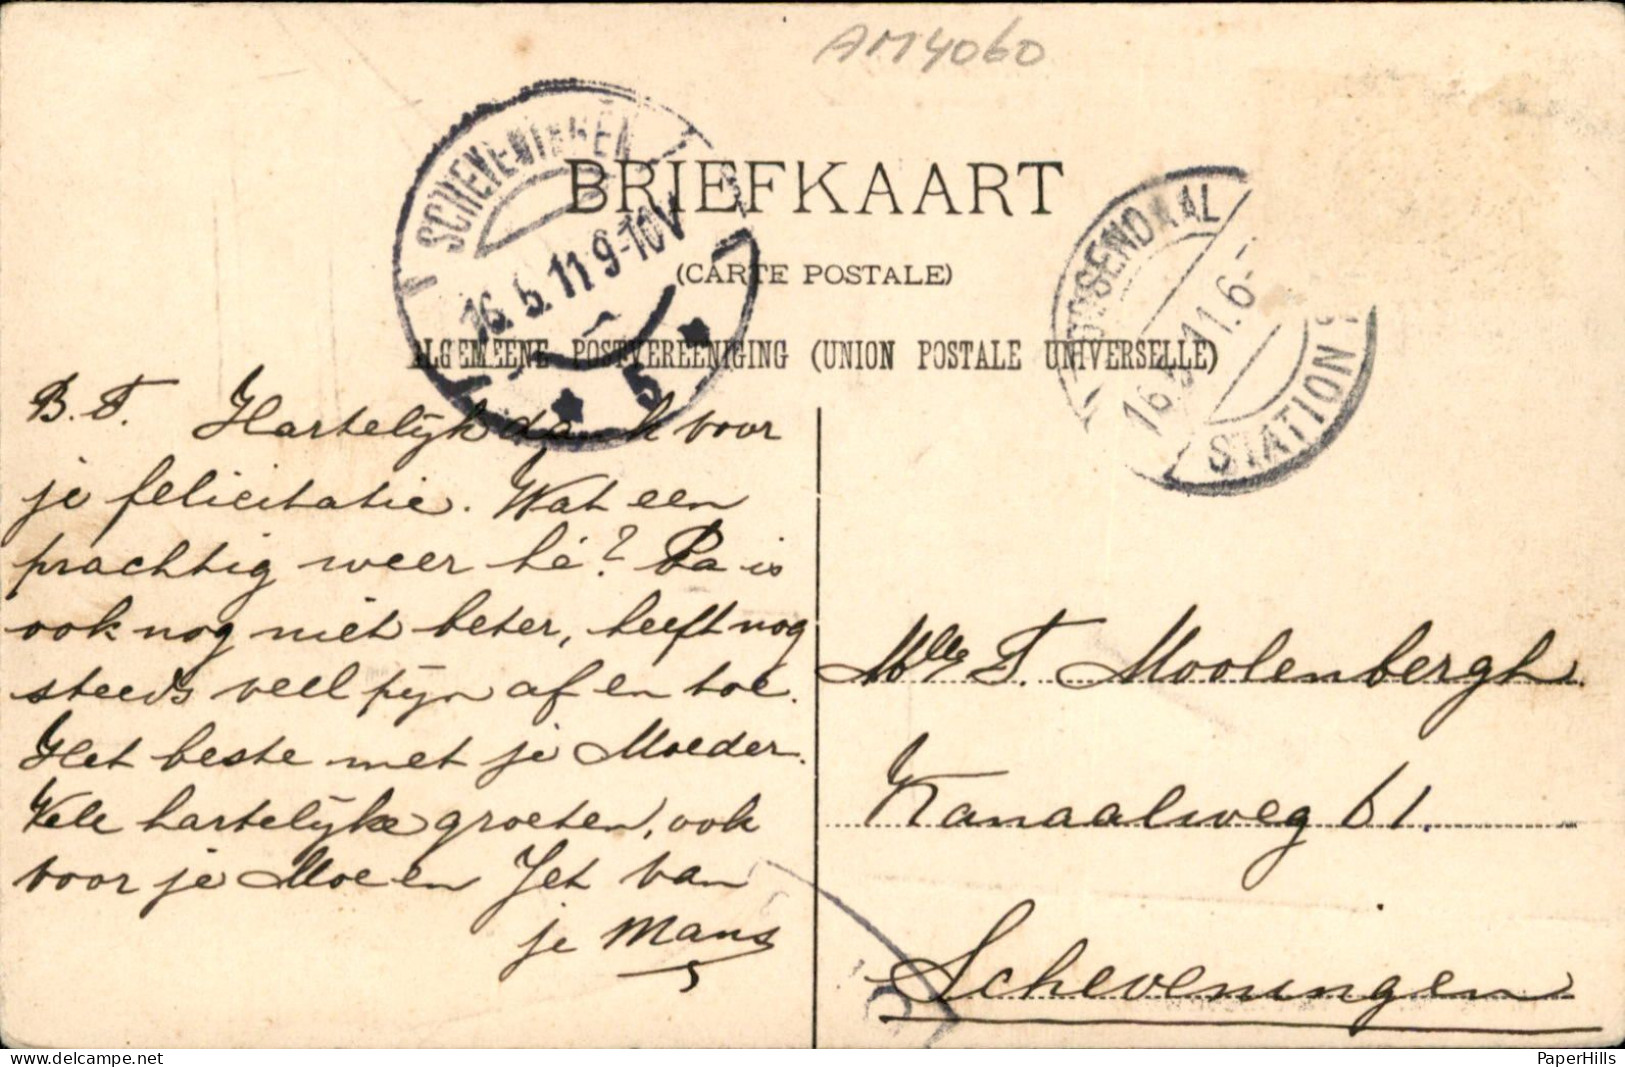 AM4060
SCHEVENINGEN
16.5.11 9-10V
5
BRIEFKAART
(CARTE POSTALE)
ALGEMEENE POSTVEREENIGING (UNION POSTALE UNIVERSELLE)
ROSENDAAL
16.5.11.6-
STATION
B. T. Hartelijk dank voor
je felicitatie. Wat een
prachtig weer hé? Pa is
ook nog niet beter, heeft nog
steeds veel pijn af en toe.
Het beste met je Moeder.
Vele hartelijke groeten, ook
voor je Moe en Jet van
je Mans
Mlle T. Moolenbergh.
Kanaalweg 61.
Scheveningen
delcampe.net
PaperHills